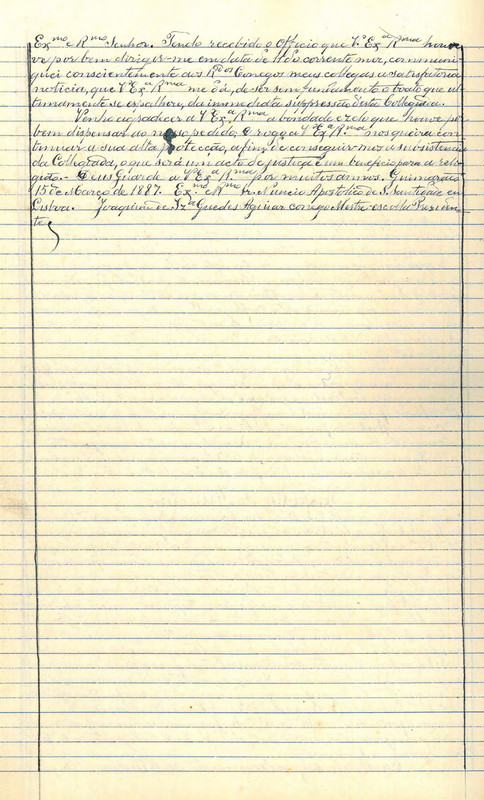 Exmo e Rmo Senhor. Tendo recebido o Officio que Vª Exª Rma houve
ve por bem dirigir-me em data de do corrente mez, communi-
quei conscientemente aos Rdos Conegos meus collegas a satisfatoria
noticia, que Vª Exª Rma me dá, de ser sem fundamento o boato que ul-
timamente se espalhou, da immediata suppressão d'esta Collegiada.
Venho agradecer a Vª Exª Rma a bondade e zelo que houve por
bem dispensar ao nosso pedido, e rogo a Vª Exª Rma nos queira con-
tinuar a sua alta protecção, a fim de conseguir-mos a subsistencia
da Collegiada, o que será um acto de justiça e um beneficio para a reli-
gião. - Deus Guarde a Vª Exª Rma por muitos annos. Guimarães
15 de Março de 1887. Exmo e Rmo Snr. Nuncio Apostolico de S. Santidade em
Lisboa. Joaquim de Guedes Aguiar conego Mestre-escola Presiden-
te